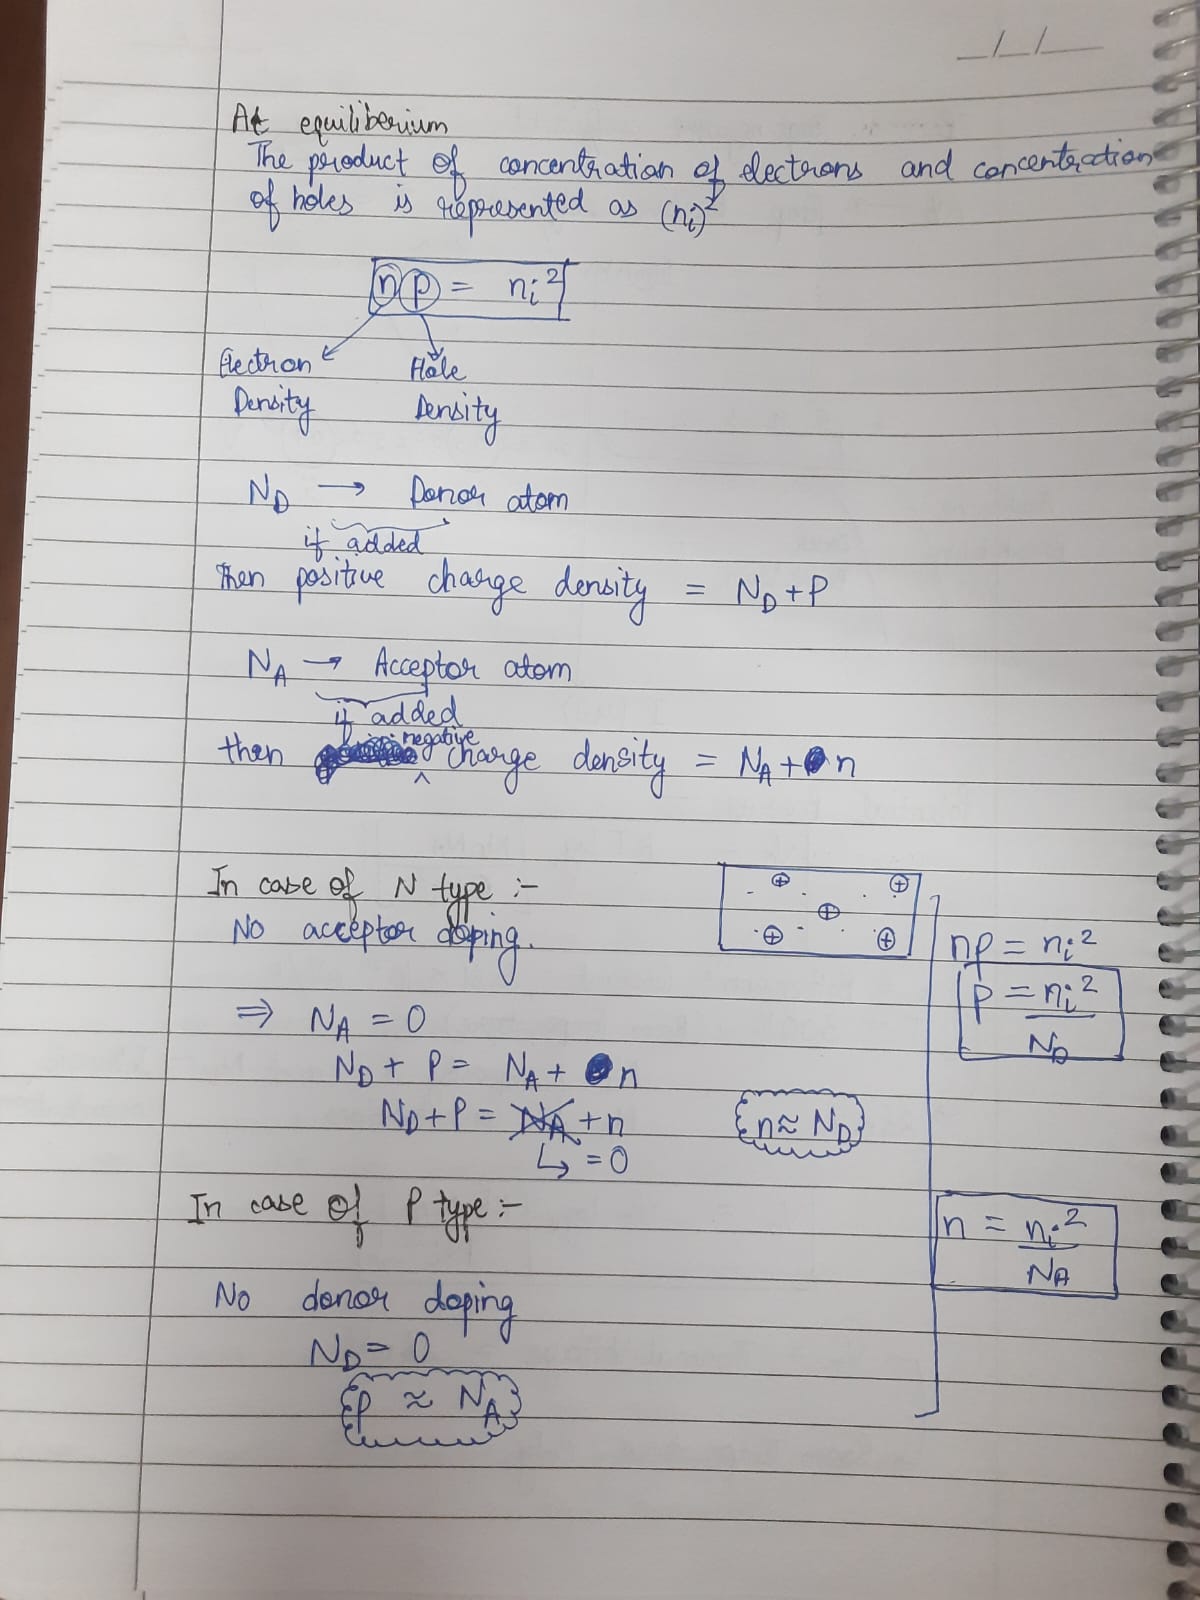 _/_/_
At equiliberium
The product of concentration of electrons and concentration
of holes is represented as (ni)²
np = ni²
Electron Density
Hole Density
ND → Donor atom
if added
then positive charge density = ND + P
NA → Acceptor atom
if added
negative
then charge density = NA + n
In case of N type :-
No acceptor doping.
⊕ ⊕ ⊕ ⊕ ⊕
np = ni²
p = ni²/ND
⇒ NA = 0
ND + P = NA + n
ND + P = NA + n
↳ = 0
n ≈ ND
In case of P type :-
n = ni²/NA
No donor doping
ND = 0
p ≈ NA